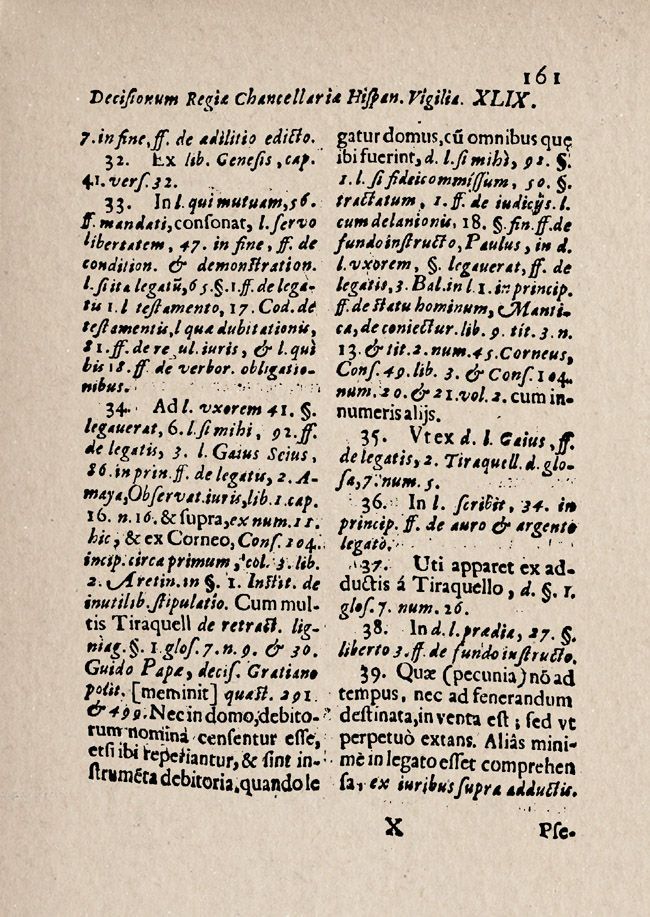 161
Decisionum Regiæ Chancellariæ Hispan. Vigilia. XLIX.
7. in fine, ff. de ædilitio edicto.
32. Ex lib. Genesis, cap.
41. vers. 32.
33. In l. qui mutuam, 56.
ff. mandati, consonat, l. servo
libertatem, 47. in fine, ff. de
condition. & demonstration.
l. si ita legatũ, 65. §. 1. ff. de lega-
tu 1. l testamento, 17. Cod. de
testamentis, l quæ dubitationis,
81. ff. de re ul. iuris, & l. qui
bis 18. ff. de verbor. obligatio-
nibus.
34. Ad l. vxorem 41. §.
legauerat, 6. l. si mihi, 92. ff.
de legatis, 3. l. Gaius Seius,
86. in prin. ff. de legatis, 2. A-
maya, Observat. iuris, lib. 1. cap.
16. n. 16. & supra, ex num. 11.
hic; & ex Corneo, Cons. 104.
incip. circa primum, col. 3. lib.
2. Aretin. in §. 1. Instit. de
inutilib. stipulatio. Cum mul-
tis Tiraquell de retract. lig-
niag. §. 1 glos. 7. n. 9. & 30.
Guido Papæ, decis. Gratiano
polit. [meminit] quæst. 291.
& 499. Nec in domo, debito-
rum nomina censentur esse,
etsi ibi reperiantur, & sint in-
strumẽta debitoria, quando le
gatur domus, cũ omnibus quę
ibi fuerint, d. l. si mihi, 92. §.
1. l. si fideicommissum, 50. §.
tractatum, 1. ff. de iudicijs. l.
cum de lanionis, 18. §. fin. ff. de
fundo instructo, Paulus, in d.
l. vxorem, §. legauerat, ff. de
legatis, 3. Bal. in l. 1. in princip.
ff. de statu hominum, Manti-
ca, de coniectur. lib. 9. tit. 3. n.
13. & tit. 2. num. 45. Corneus,
Cons. 49. lib. 3. & Cons. 104.
num. 20. & 21. vol. 2. cum in-
numeris alijs.
35. Vt ex d. l. Gaius, ff.
de legatis, 2. Tiraquell. d. glo-
sa, 7. num. 5.
36. In l. scribit, 34. in
princip. ff. de auro & argento
legato.
37. Uti apparet ex ad-
ductis á Tiraquello, d. §. 1.
glos. 7. num. 26.
38. In d. l. prædia, 27. §.
liberto 3. ff. de fundo instructo.
39. Quæ (pecunia) nõ ad
tempus, nec ad fenerandum
destinata, in venta est; sed vt
perpetuò extans. Aliâs mini-
mè in legato esset comprehen
sa, ex iuribus supra adductis.
X
Pse-